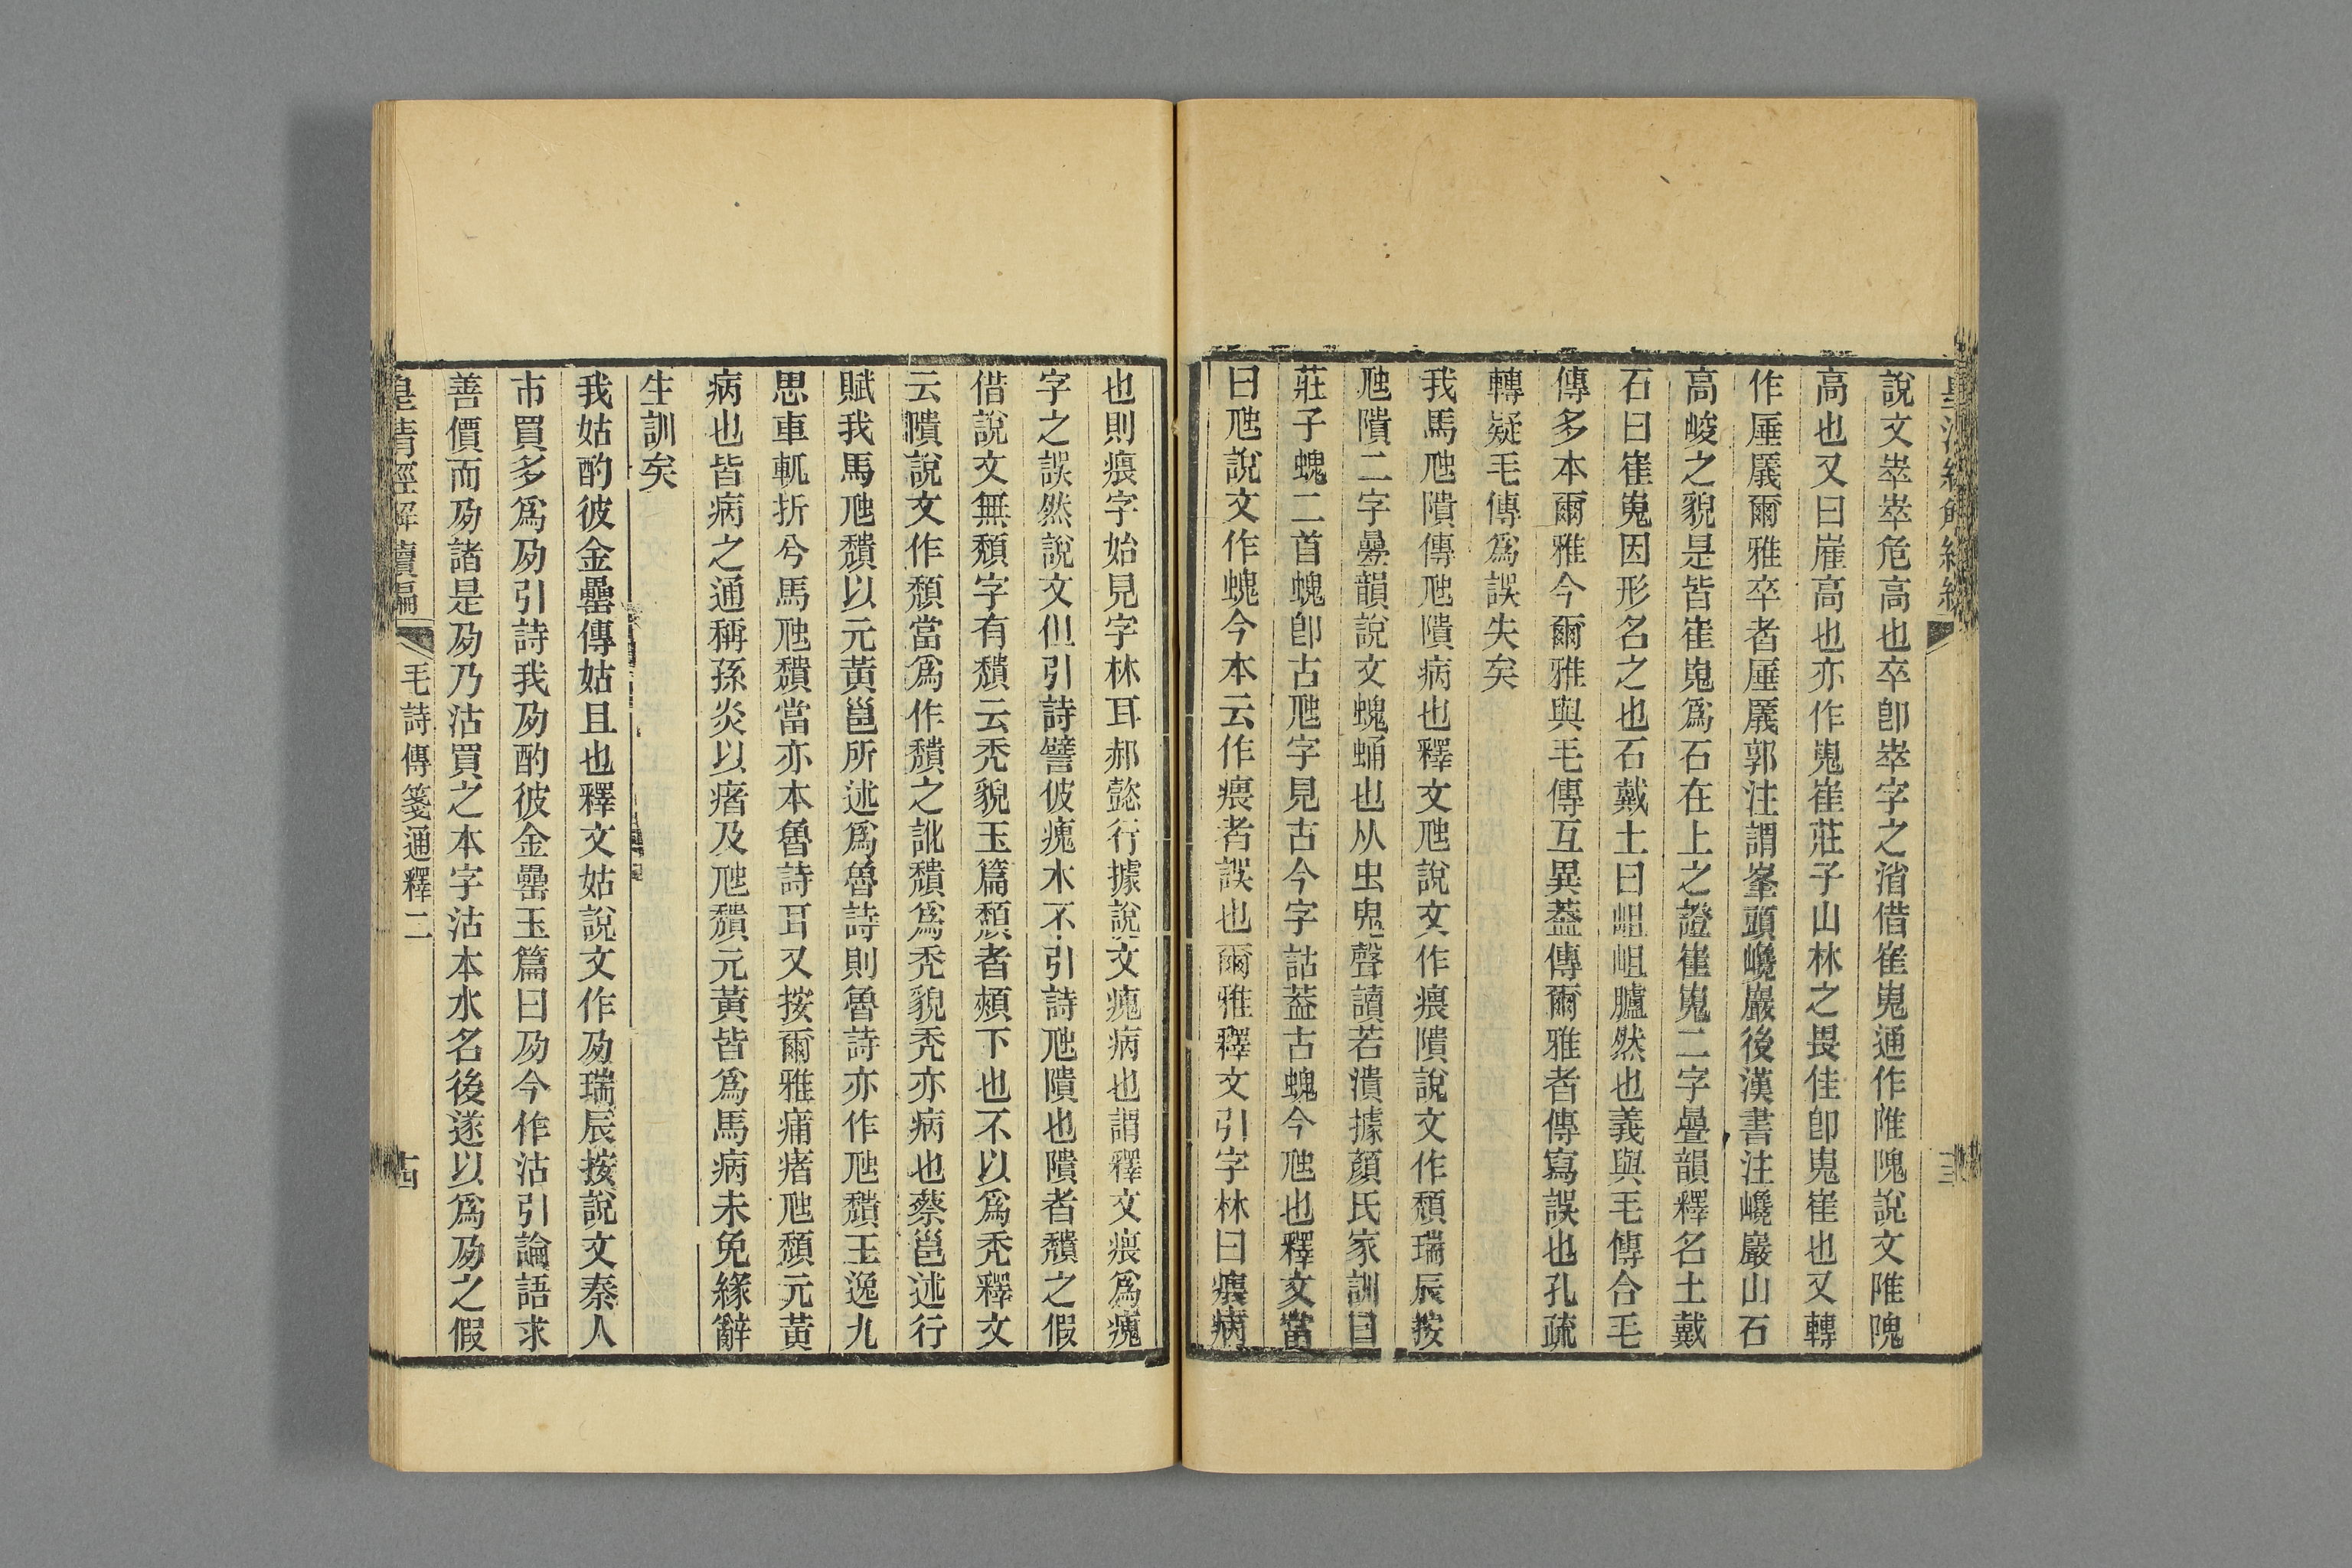 說文崒崒危高也卒卽崒字之渻借崔嵬通作隹隗說文陮隗
高也又曰崔高也亦作嵬崔莊子山林之畏佳卽嵬崔也又轉
作厜㕒爾雅卒者厜㕒郭注謂峯頭巉巖後漢書注巉巖山石
高峻之貌是皆崔嵬爲石在上之證崔嵬二字疊韻釋名土戴
石曰崔嵬因形名之也石戴土曰岨岨臚然也義與毛傳合毛
傳多本爾雅今爾雅與毛傳互異葢傳爾雅者傳寫誤也孔疏
轉疑毛傳爲誤失矣
我馬虺隤傳虺隤病也釋文虺說文作痕隤說文作頽瑞辰按
虺隤二字疊韻說文螝蛹也从虫鬼聲讀若潰據顏氏家訓目
莊子螝二首螝卽古虺字見古今字詁葢古螝今虺也釋文當
曰虺說文作螝今本云作痕者誤也爾雅釋文引字林曰痕病
也則痕字始見字林耳郝懿行據說文瘣病也謂釋文痕爲瘣
字之誤然說文但引詩譬彼瘣木不引詩虺隤也隤者穨之假
借說文無頽字有穨云禿貌玉篇頽者頫下也不以爲禿釋文
云隤說文作頽當爲作穨之訛穨爲禿貌禿亦病也蔡邕述行
賦我馬虺穨以元黄邕所述爲魯詩則魯詩亦作虺穨王逸九
思車軏折兮馬虺穨當亦本魯詩耳又按爾雅痡瘏虺頽元黄
病也皆病之通稱孫炎以瘏及虺穨元黃皆爲馬病未免緣辭
生訓矣
我姑酌彼金罍傳姑且也釋文姑說文作夃瑞辰按說文秦人
市買多爲夃引詩我夃酌彼金罍玉篇曰夃今作沽引論語求
善價而夃諸是夃乃沽買之本字沽本水名後遂以爲夃之假
皇清經解續編 毛詩傳箋通釋二 十四